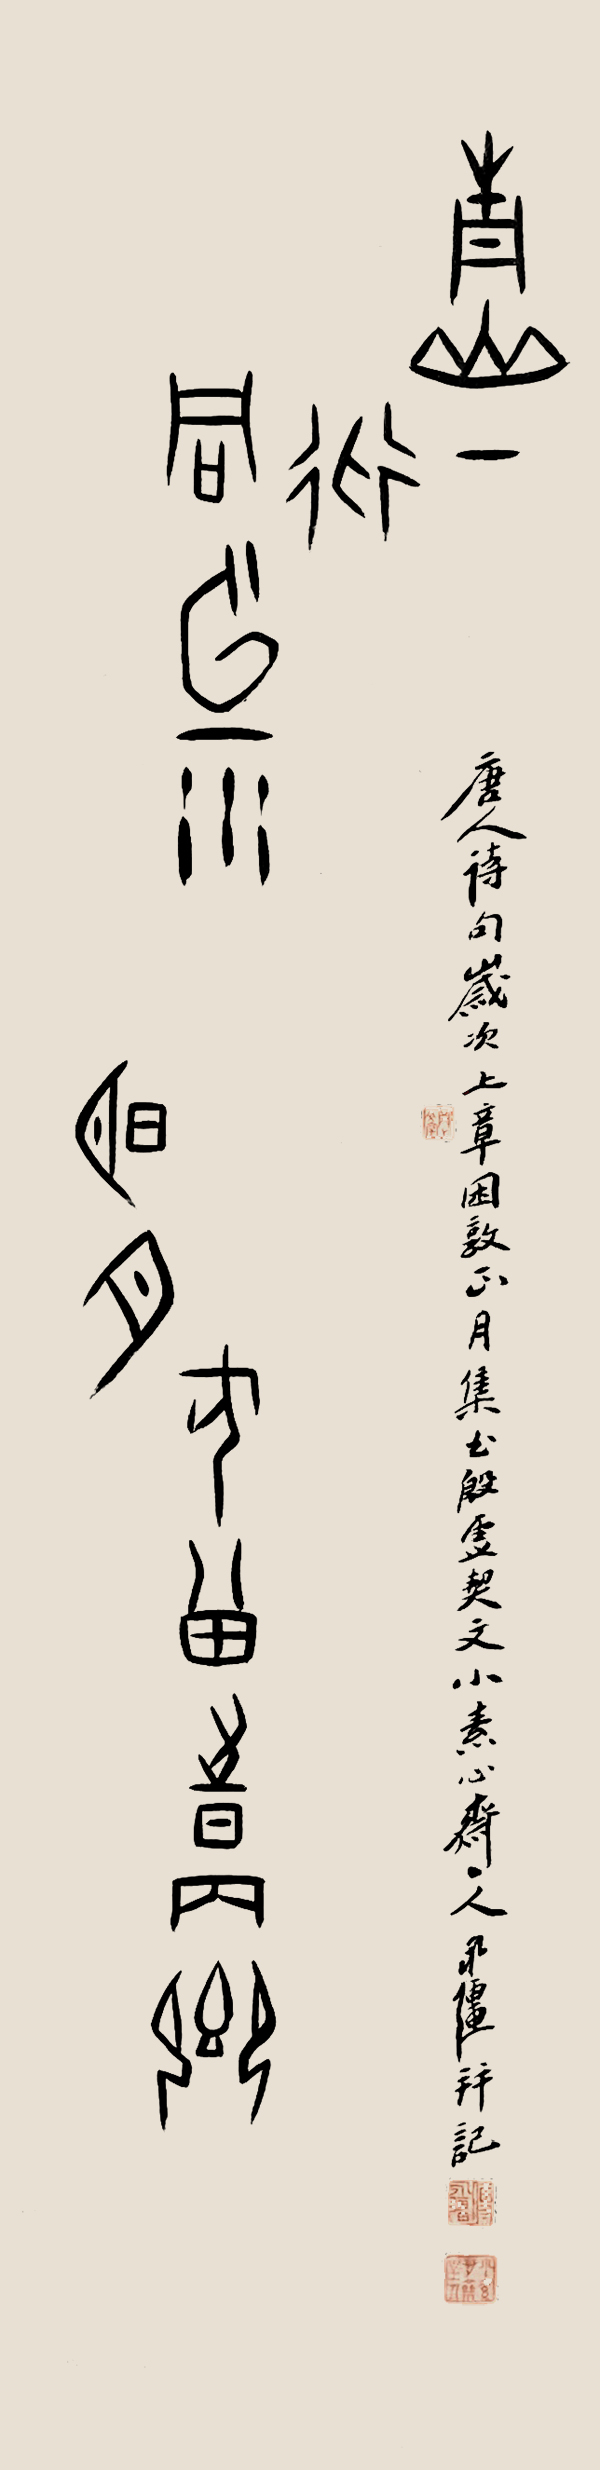 青山一道同雲雨
明月何曾是兩鄉
唐人詩句歲次上章困敦正月集书殷虛契文小素心齋丶人
拜記